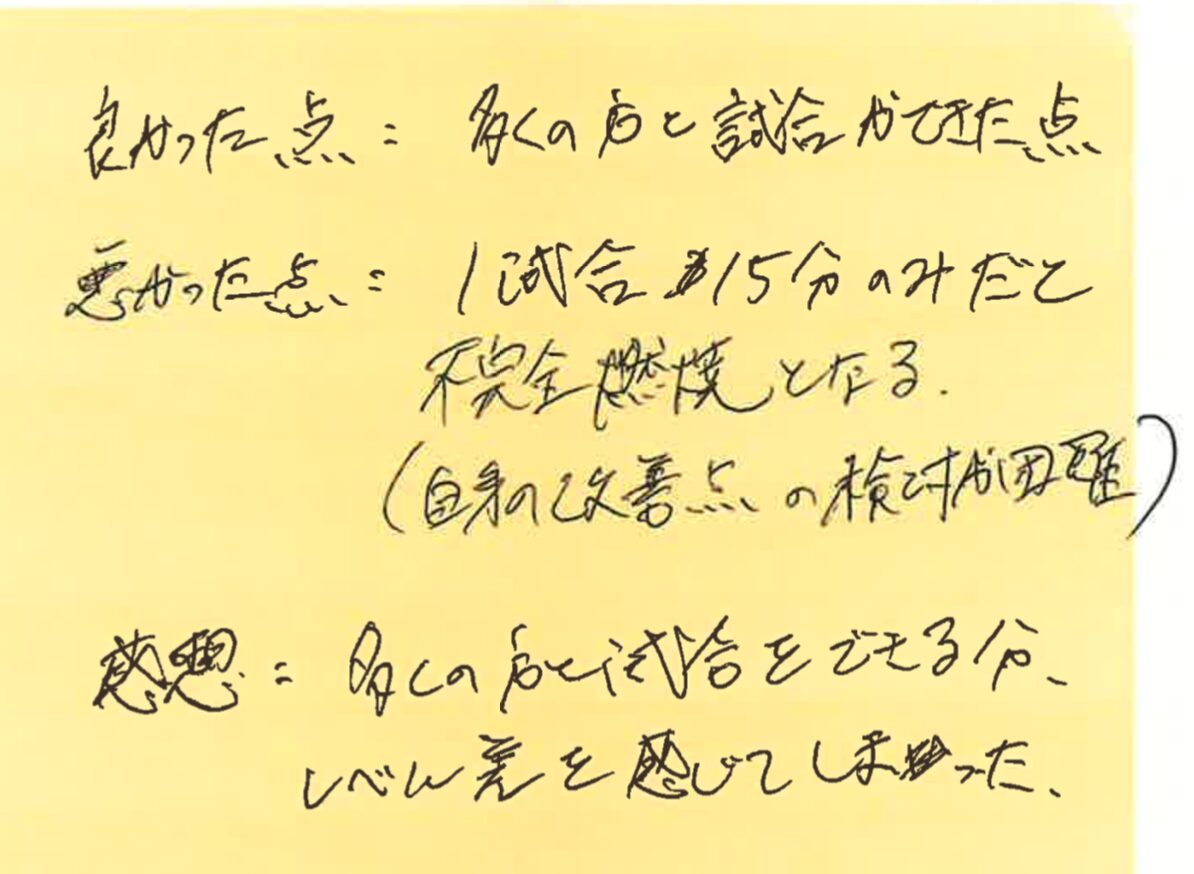 良かった点：多くの方と試合ができた点
悪かった点：1試合15分のみだと
不完全燃焼となる.
(自身の改善点の検討が困難)
感想：多くの方と試合をできる分、
レベル差を感じてしまった、